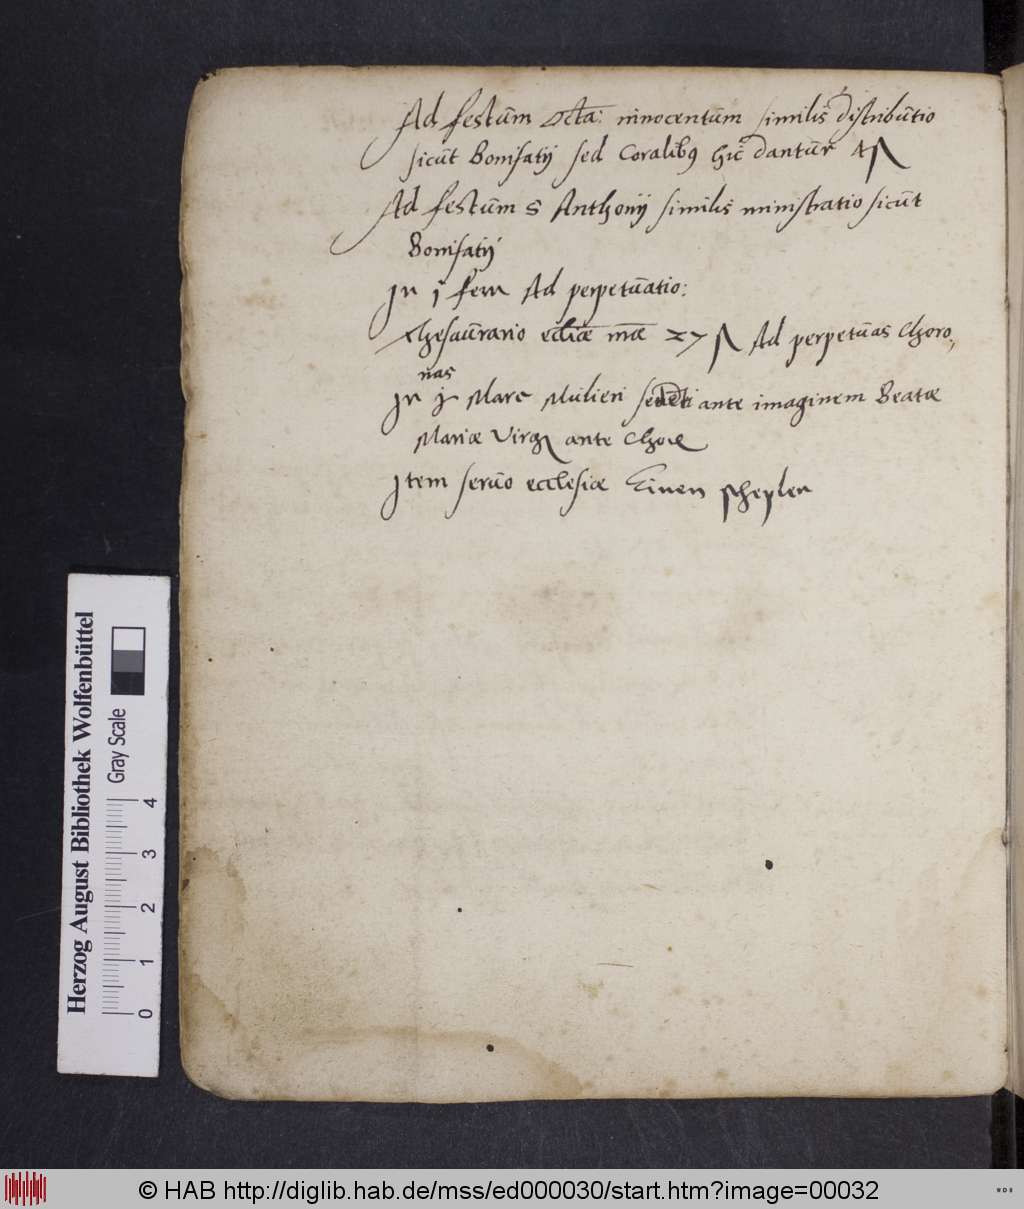 Ad festum Octa: innocentum similis distributio
sicut Bonifatij sed Coralib9 hic dantur 4 ß
Ad festum S Anthonij similis ministratio sicut
Bonifatij
In j ferii Ad perpetuatio:
Thesaurario eccliæ mæ xv ß Ad perpetuas Choro,
nas
In Marc Mulieri sedenti ante imaginem Beatæ
Mariæ Virg ante Chore
Item seruo ecclesiæ Einen schepler
Herzog August Bibliothek Wolfenbüttel
Gray Scale
0 1 2 3 4
© HAB http://diglib.hab.de/mss/ed000030/start.htm?image=00032